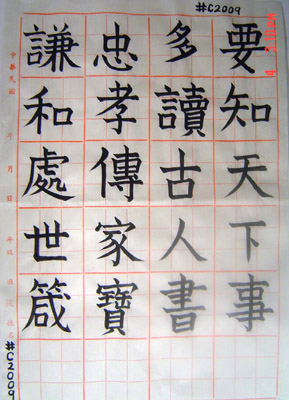 #C2009
要知天下事
多讀古人書
忠孝傳家寶
謙和處世箴
中華民國 年 月 日
#C2009